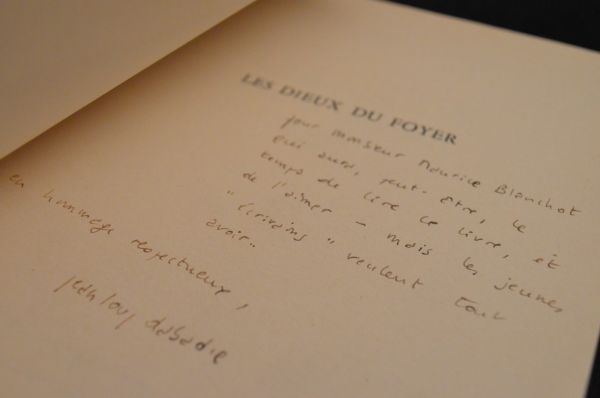 LES DIEUX DU FOYER
pour monsieur Maurice Blanchot
qui aura, peut-être, le
temps de lire ce livre, et
de l'aimer - mais les jeunes
"écrivains" veulent tout
avoir..
en hommage respectueux,
jean loup dabadie